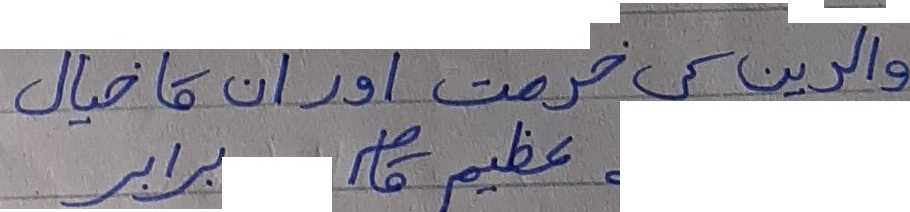 والدین کی خدمت اور ان کا خیال
عظیم کام برابر